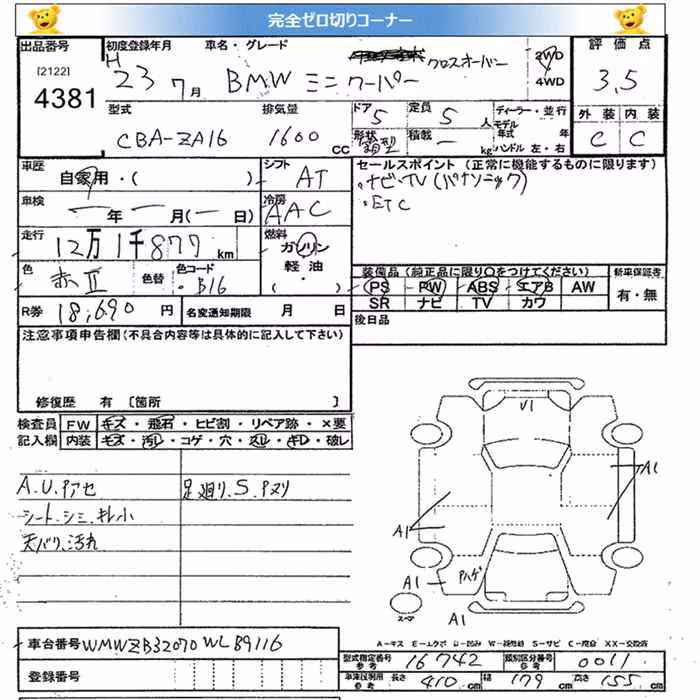 完全ゼロ切りコーナー
出品番号 初度登録年月 車名・グレード 評価点
[2122] 4381
H 23 7月 BMW ミニクーパー クロスオーバー 2WD 4WD 3.5
型式 排気量 ドア 5 定員 5人 ディーラー・並行 外装 内装
CBA-ZA16 1600cc 形状 箱型 積載 ー kg モデル年式 年 ハンドル 左・右 C C
車歴 自家用・( ) シフト AT
セールスポイント (正常に機能するものに限ります)
・ナビ・TV(パナソニック)
・ETC
車検 ー年 ー月(ー日) 冷房 AAC
走行 12万1千877km 燃料 ガソリン 軽油 ・( )
色 赤II 色替 色コード ・B16
装備品(純正品に限り○をつけてください) 新車保証書
PS PW ABS エアB AW 有・無
SR ナビ TV カワ
R券 18,690円 名変通知期限 月 日
後日品
注意事項申告欄(不具合内容等は具体的に記入して下さい)
修復歴 有 [箇所 ]
検査員 FW キズ・飛石・ヒビ割・リペア跡・×要
記入欄 内装 キズ・汚レ・コゲ・穴・スレ・キレ・破レ
A.U.Pアセ 足廻り.S.Pヌリ
シート.シミ.キレ小
天バリ.汚れ
V1
A1
A1
A1 Pハゲ
A1
スペア
A-キズ E-エクボ U-凹み W-補修跡 S-サビ C-腐食 XX-交換済
車台番号 WMWZB32070WL89116
登録番号
型式指定番号 参考 16742 類別区分番号 参考 0011
車検証明用 参考 長さ 410cm 幅 179cm 高さ 155cm